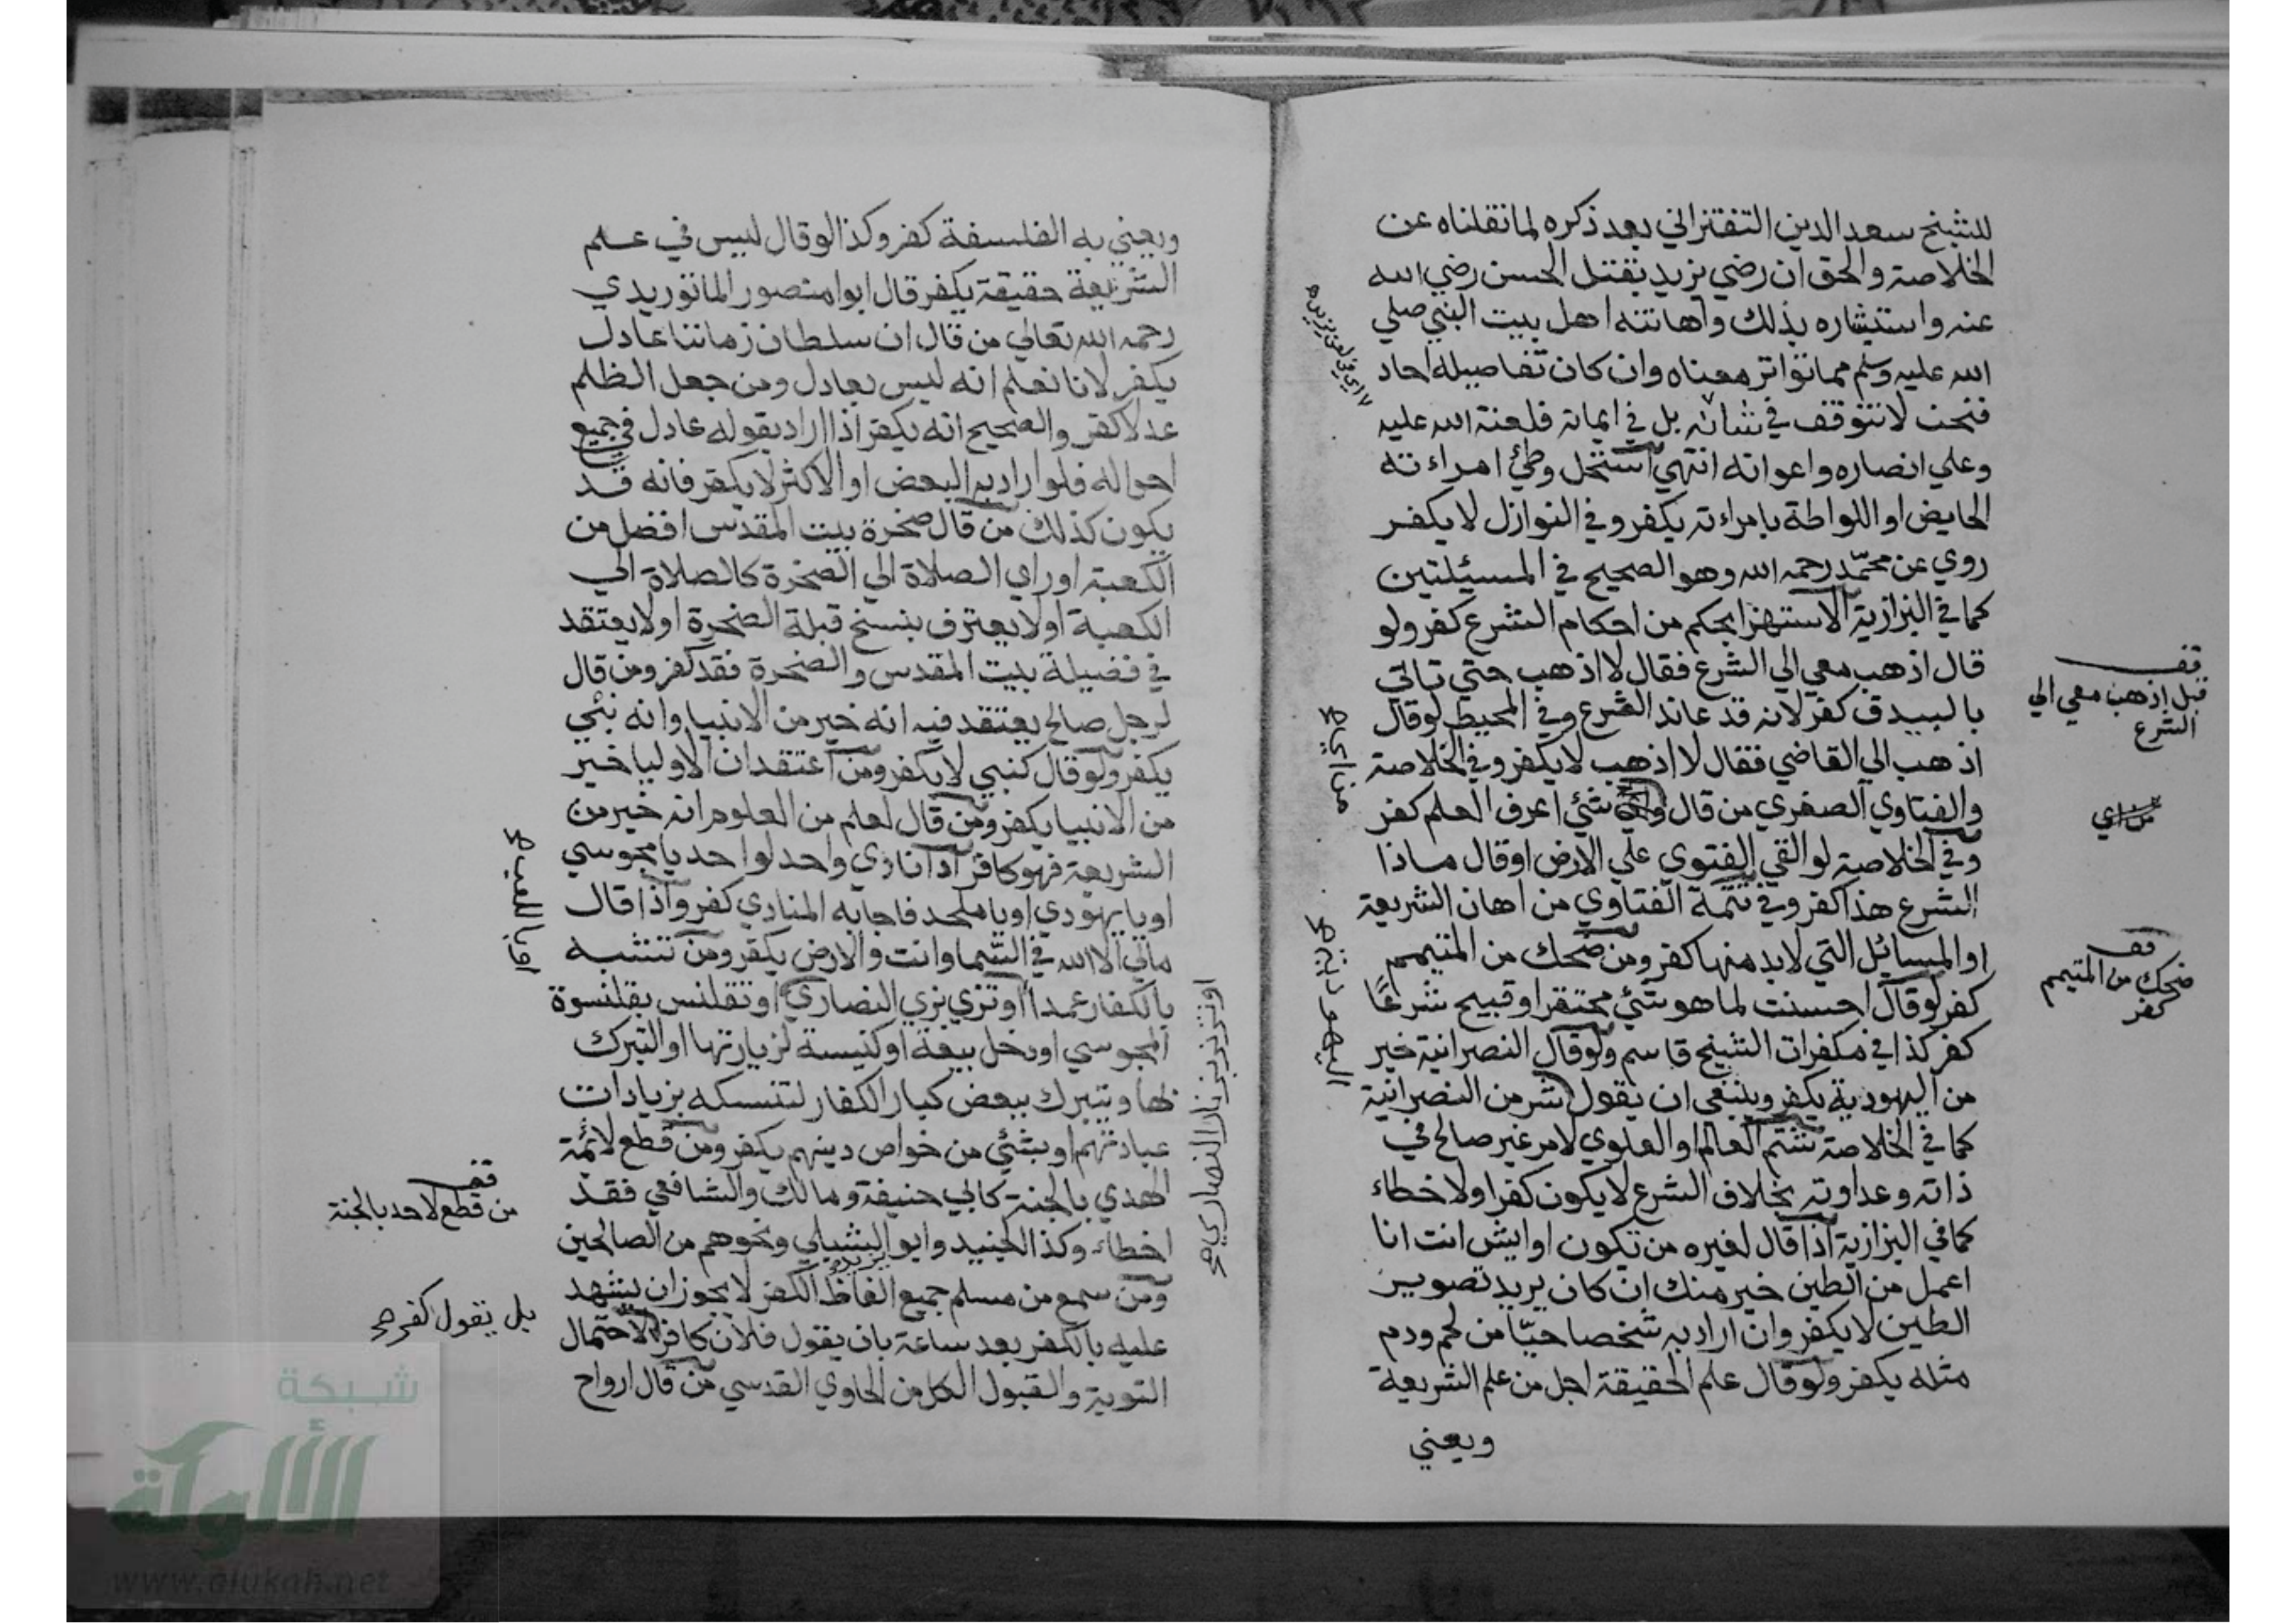 للشيخ سعد الدين التفتزاني بعد ذكره لما نقلناه عن
الخلاصة والحق ان رضي يزيد بقتل الحسن رضي الله
عنه واستبشاره بذلك واهانته اهل بيت النبي صلي
الله عليه وسلم مما تواتر معناه وان كان تفاصيله احاد
فنحن لا نتوقف في شانه بل في ايمانه فلعنة الله عليه
وعلي انصاره واعوانه انتهي استحل وطئ امراءته
الحايض او اللواطة بامراءته يكفر وفي النوازل لا يكفر
روي عن محمد رحمه الله وهو الصحيح في المسيئلتين
كما في البزازية الاستهزا بحكم من احكام الشرع كفر ولو
قال اذهب معي الي الشرع فقال لا اذهب حتي تاتي
بالبيدق كفر لانه قد عاند الشرع وفي المحيط لو قال
اذهب الي القاضي فقال لا اذهب لا يكفر وفي الخلاصة
والفتاوي الصغري من قال شئي اعرف العلم كفر
وفي الخلاصة لو القي الفتوي علي الارض او قال ماذا
الشرع هذا كفر وفي تتمة الفتاوي من اهان الشريعة
او المسائل التي لابد منها كفر ومن ضحك من المتيمم
كفر لو قال احسنت لما هو شئي محتقر او قبيح شرعًا
كفر كذا في مكفرات الشيخ قاسم ولو قال النصرانية خير
من اليهودية يكفر وينبغي ان يقول شر من النصرانية
كما في الخلاصة شتم العالم او العلوي لامر غير صالح في
ذاته وعداوته بخلاف الشرع لا يكون كفرا ولا خطاء
كما في البزازية اذا قال لغيره من تكون او ايش انت انا
اعمل من الطين خير منك ان كان يريد تصوير
الطين لا يكفر وان اراد به شخصا حيّا من لحم ودم
مثله يكفر ولو قال علم الحقيقة اجل من علم الشريعة
ويعني
قف
قبل اذهب معي الي
الشرع
قف
ضحك من المتيمم
كفر
من اي صح
اليهودية شر صح
ويعني به الفلسفة كفر وكذا لو قال ليس في علم
الشريعة حقيقة يكفر قال ابوا منصور الماتوريدي
رحمه الله تعالي من قال ان سلطان زماننا عادل
يكفر لانا نعلم انه ليس بعادل ومن جعل الظلم
عدلا كفر والصحيح انه يكفر اذا اراد بقوله عادل في جميع
احواله فلو اراد به البعض او الاكثر لا يكفر فانه قد
يكون كذلك من قال صخرة بيت المقدس افضل من
الكعبة او راي الصلاة الي الصخرة كالصلاة الي
الكعبة او لا يعترف بنسخ قبلة الصخرة او لا يعتقد
في فضيلة بيت المقدس والصخرة فقد كفر ومن قال
لرجل صالح يعتقد فيه انه خير من الانبيا وانه نبئي
يكفر ولو قال كنبي لا يكفر ومن اعتقد ان الاوليا خير
من الانبيا يكفر ومن قال لعلم من العلوم انه خير من
الشريعة فهو كافر اذا نادي واحد لواحد يا مجوسي
او يا يهودي او يا ملحد فاجابه المنادي كفر واذا قال
مالي الا الله في السما وانت والارض يكفر ومن تتشبه
بالكفار عمدا او تزي بزي النصاري او تقلنس بقلنسوة
المجوسي او دخل بيعة او كنيسة لزيارتها او التبرك
بها او يتبرك ببعض كبار الكفار لتنسكه بزيادات
عبادتهم او بشئي من خواص دينهم يكفر ومن قطع لائمة
الهدي بالجنة كابي حنيفة ومالك والشافعي فقد
اخطاء وكذا الجنيد وابو الشبلي ونحوهم من الصالحين
ومن سمع من مسلم جميع الفاظ الكفر لا يجوز ان يشهد
عليه بالكفر بعد ساعة بان يقول فلان كافر لاحتمال
التوبة والقبول الكل من الحاوي القدسي من قال ارواح
او يا للعب صح
او تزنر بزنار النصاري صح
قف
من قطع لاحد بالجنة
بل يقول كفر صح
شبكة
الألوكة
www.alukah.net